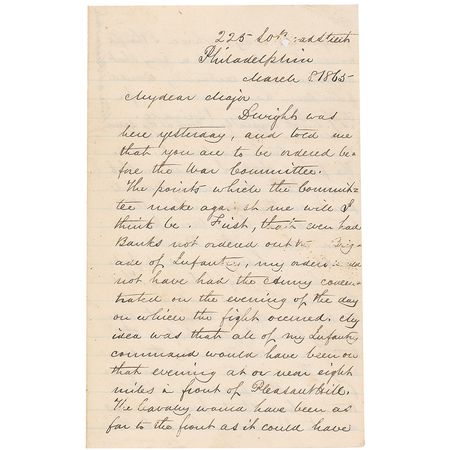 225 So Broad Street
Philadelphia
March 8 1865
My dear Major
Dwight was
here yesterday, and told me
that you are to be ordered be-
fore the War Committee.
The points which the Commit-
tee make against me will I
think be. First, that even had
Banks not ordered out the Brig-
ade of Infantry, my orders would
not have had the Army concen-
trated on the evening of the day
on which the fight occured. My
idea was that all of my Infantry
command would have been on
that evening at or near eight
miles in front of Pleasant hill.
The Cavalry would have been as
far to the front as it could have